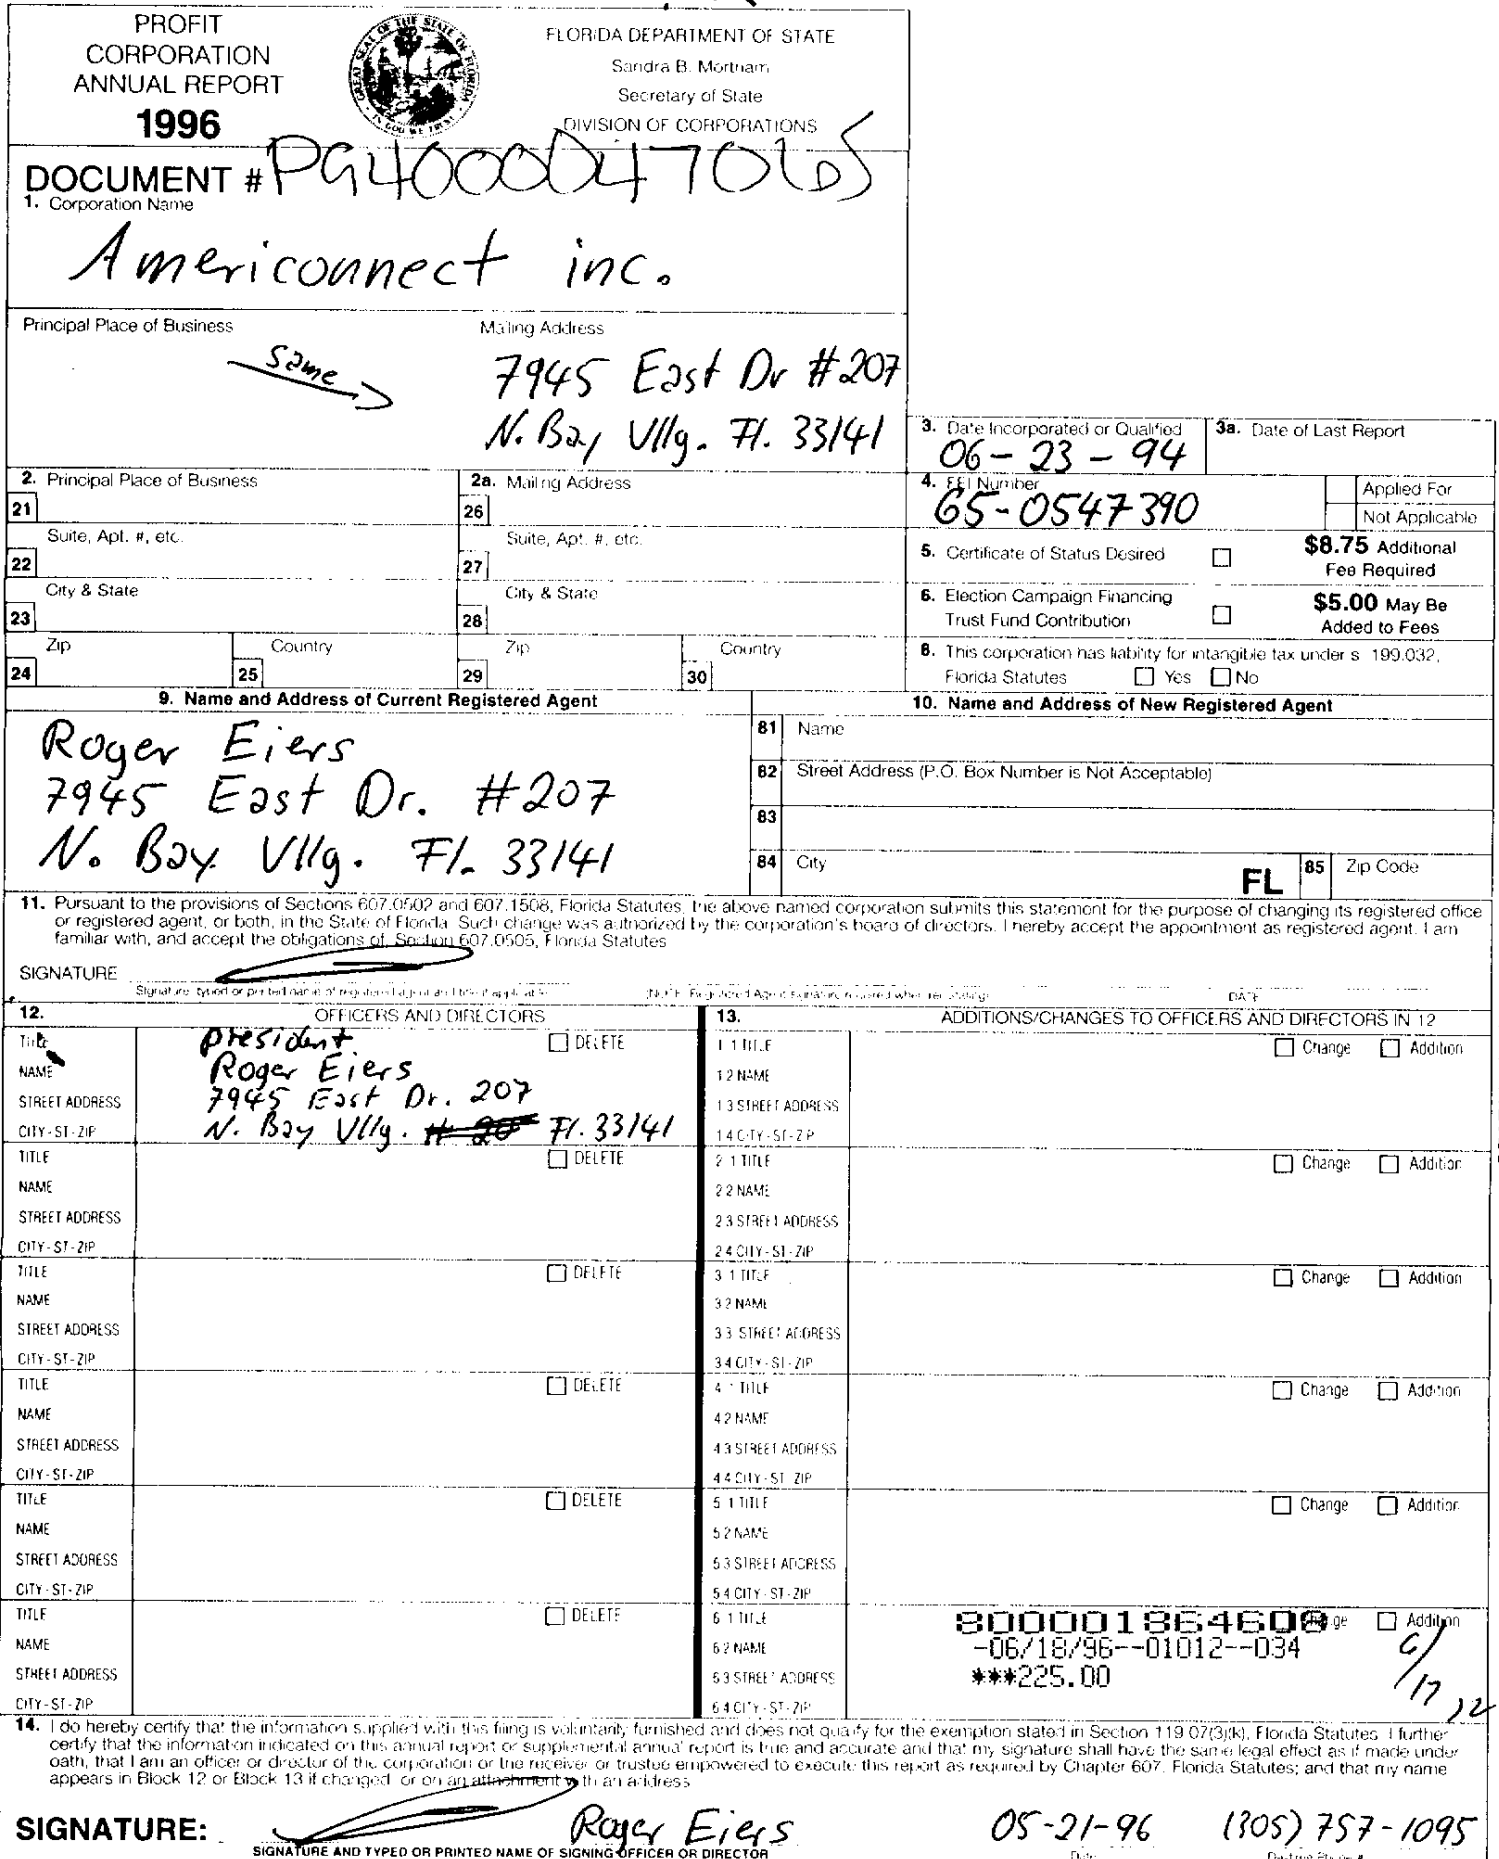 PROFIT
CORPORATION
ANNUAL REPORT
1996
GREAT SEAL OF THE STATE OF FLORIDA
IN GOD WE TRUST
FLORIDA DEPARTMENT OF STATE
Sandra B. Mortham
Secretary of State
DIVISION OF CORPORATIONS
DOCUMENT # P94000047065
1. Corporation Name
Americonnect inc.
Principal Place of Business
same
Mailing Address
7945 East Dr #207
N. Bay Vllg. Fl. 33141
3. Date Incorporated or Qualified
06-23-94
3a. Date of Last Report
2. Principal Place of Business
21
2a. Mailing Address
26
4. FEI Number
65-0547390
Applied For
Not Applicable
Suite, Apt. #, etc.
22
Suite, Apt. #, etc.
27
5. Certificate of Status Desired
$8.75 Additional
Fee Required
City & State
23
City & State
28
6. Election Campaign Financing
Trust Fund Contribution
$5.00 May Be
Added to Fees
Zip
24
Country
25
Zip
29
Country
30
8. This corporation has liability for intangible tax under s 199.032,
Florida Statutes Yes No
9. Name and Address of Current Registered Agent
Roger Eiers
7945 East Dr. #207
N. Bay Vllg. Fl. 33141
10. Name and Address of New Registered Agent
81 Name
82 Street Address (P.O. Box Number is Not Acceptable)
83
84 City
FL
85 Zip Code
11. Pursuant to the provisions of Sections 607.0502 and 607.1508, Florida Statutes, the above named corporation submits this statement for the purpose of changing its registered office
or registered agent, or both, in the State of Florida Such change was authorized by the corporation's board of directors. I hereby accept the appointment as registered agent. I am
familiar with, and accept the obligations of, Section 607.0505, Florida Statutes
SIGNATURE
Signature, typed or printed name of registered agent and title if applicable
(NOTE: Registered Agent signature required when reinstating)
DATE
12. OFFICERS AND DIRECTORS
Title president DELETE
NAME Roger Eiers
STREET ADDRESS 7945 East Dr. 207
CITY-ST-ZIP N. Bay Vllg. Fl. 33141
TITLE DELETE
NAME
STREET ADDRESS
CITY-ST-ZIP
TITLE DELETE
NAME
STREET ADDRESS
CITY-ST-ZIP
TITLE DELETE
NAME
STREET ADDRESS
CITY-ST-ZIP
TITLE DELETE
NAME
STREET ADDRESS
CITY-ST-ZIP
TITLE DELETE
NAME
STREET ADDRESS
CITY-ST-ZIP
13. ADDITIONS/CHANGES TO OFFICERS AND DIRECTORS IN 12
1 1 TITLE Change Addition
1 2 NAME
1 3 STREET ADDRESS
1 4 CITY-ST-ZIP
2 1 TITLE Change Addition
2 2 NAME
2 3 STREET ADDRESS
2 4 CITY-ST-ZIP
3 1 TITLE Change Addition
3 2 NAME
3 3 STREET ADDRESS
3 4 CITY-ST-ZIP
4 1 TITLE Change Addition
4 2 NAME
4 3 STREET ADDRESS
4 4 CITY-ST-ZIP
5 1 TITLE Change Addition
5 2 NAME
5 3 STREET ADDRESS
5 4 CITY-ST-ZIP
6 1 TITLE 800001864608 Addition
6 2 NAME -06/18/96--01012--034
6 3 STREET ADDRESS ***225.00
6 4 CITY-ST-ZIP
6/17
14. I do hereby certify that the information supplied with this filing is voluntarily furnished and does not qualify for the exemption stated in Section 119 07(3)(k), Florida Statutes I further
certify that the information indicated on this annual report or supplemental annual report is true and accurate and that my signature shall have the same legal effect as if made under
oath, that I am an officer or director of the corporation or the receiver or trustee empowered to execute this report as required by Chapter 607, Florida Statutes; and that my name
appears in Block 12 or Block 13 if changed or on an attachment with an address
SIGNATURE: Roger Eiers 05-21-96 (305) 757-1095
SIGNATURE AND TYPED OR PRINTED NAME OF SIGNING OFFICER OR DIRECTOR
Date
Daytime Phone #